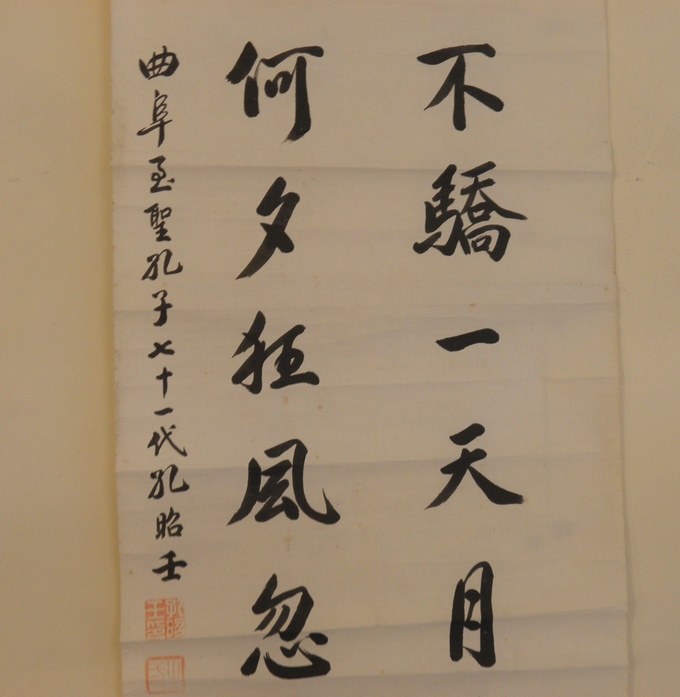 不驕一天月
何夕狂風忽
曲阜至聖孔子七十一代孔昭壬